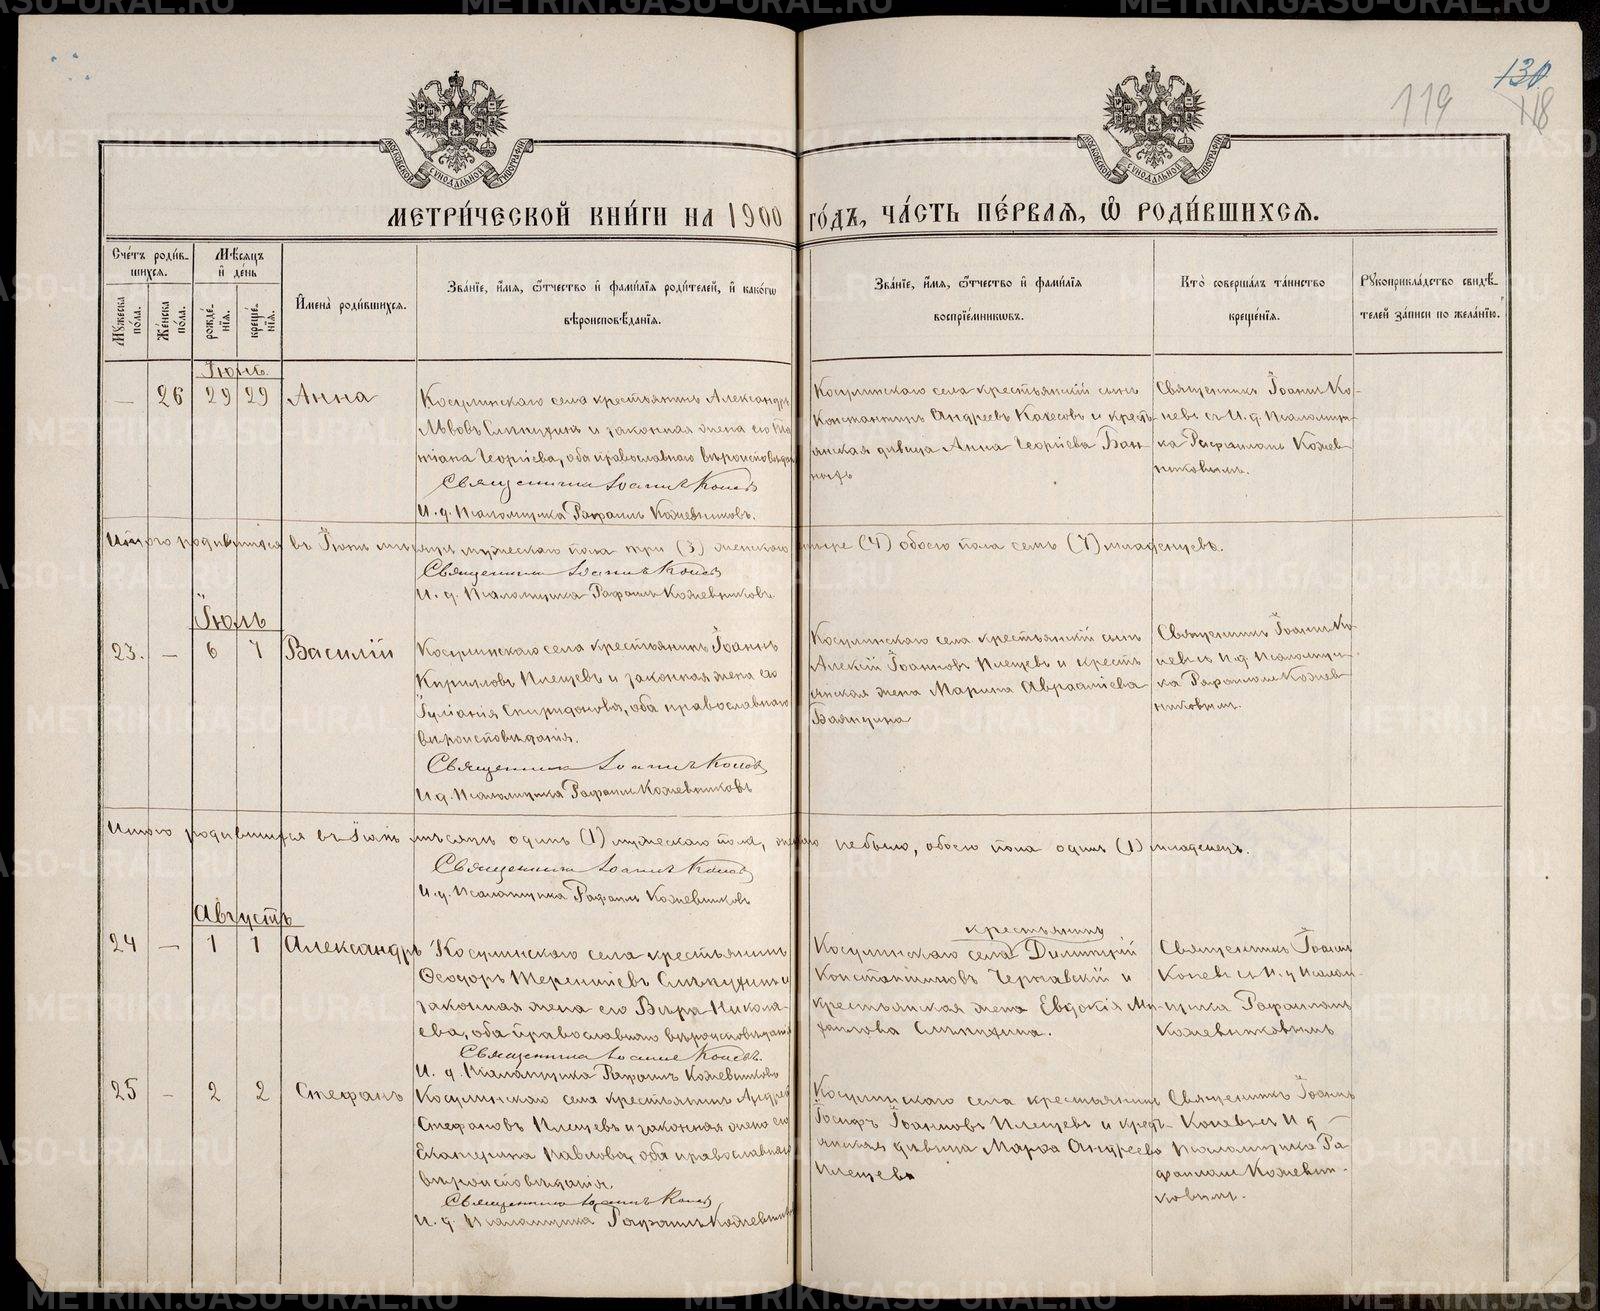 130
119
118
МОСКОВСКОЙ СѴНОДАЛЬНОЙ ТИПОГРАФІИ
МОСКОВСКОЙ СѴНОДАЛЬНОЙ ТИПОГРАФІИ
МЕТРИ́ЧЕСКОЙ КНИ́ГИ НА 1900 ГО́ДЪ, ЧА́СТЬ ПЕ́РВАЯ, Ѽ РОДИ́ВШИХСЯ.
Сче́тъ роди́вшихся.
Мꙋ́жеска по́ла.
Же́нска по́ла.
Мѣ́сяцъ и҆ де́нь
рожде́нїя.
креще́нїя.
И҆мена̀ роди́вшихся.
Зва́нїе, и҆́мя, ѻ҆́тчество и҆ фами́лїя роди́телей, и҆ како́гѡ вѣроисповѣ́данїя.
Зва́нїе, и҆́мя, ѻ҆́тчество и҆ фами́лїя воспрїе́мникѡвъ.
Кто̀ соверша́лъ та́инство креще́нїя.
Рꙋкоприкла́дство свидѣ́телей за́писи по жела́нїю.
Іюнь.
— 26 29 29 Анна
Косулинскаго села крестьянинъ Александръ
Львовъ Слѣпухинъ и законная жена его Та
тіана Георгіева, оба православнаго вѣроисповѣдан
Священникъ Іоаннъ Коневъ
И. д. Псаломщика Рафаилъ Кожевниковъ.
Косулинскаго села крестьянскій сынъ
Константинъ Андреевъ и кресть-
янская дѣвица Анна Георгіева
Священникъ Іоаннъ Ко-
невъ съ И. д. Псаломщи-
ка Рафаиломъ Кожев
никовымъ.
Итого родившихся въ Іюнѣ мѣсяцѣ мужескаго пола три (3) женскаго четыре (4) обоего пола семь (7) младенцевъ.
Священникъ Іоаннъ Коневъ
И. д. Псаломщика Рафаилъ Кожевниковъ.
Іюль
23. — 6 7 Василій
Косулинскаго села крестьянинъ Іоаннъ
Кирилловъ Плещевъ и законная жена его
Іуліанія Спиридонова, оба православнаго
вѣроисповѣданія.
Священникъ Іоаннъ Коневъ
И. д. Псаломщика Рафаилъ Кожевниковъ
Косулинскаго села крестьянскій сынъ
Алексій Іоанновъ Плещевъ и кресть
янская жена Марина Авраамиева
Священникъ Іоаннъ Ко-
невъ съ И. д. Псаломщи-
ка Рафаиломъ Кожев
никовымъ.
Итого родившихся въ Іюлѣ мѣсяцѣ одинъ (1) мужескаго пола, женскаго небыло, обоего пола одинъ (1) младенецъ.
Священникъ Іоаннъ Коневъ
И. д. Псаломщика Рафаилъ Кожевниковъ
Августъ
24 — 1 1 Александръ
Косулинскаго села крестьянинъ
Ѳеодоръ Терентіевъ Слѣпухинъ и
законная жена его Вѣра Никола-
ева, оба православнаго вѣроисповѣданія
Священникъ Іоаннъ Коневъ.
И. д. Псаломщика Рафаилъ Кожевниковъ
крестьянинъ
Косулинскаго села Димитрій
Константиновъ Чернавскій и
крестьянская жена Евдокія Ми-
хаилова Слѣпухина.
Священникъ Іоаннъ
Коневъ съ И. д. Псалом-
щика Рафаиломъ
Кожевниковымъ
25 — 2 2 Стефанъ
Косулинскаго села крестьянинъ Андрей
Стефановъ Плещевъ и законная жена его
Екатерина Павлова, оба православнаго
вѣроисповѣданія.
Священникъ Іоаннъ Коневъ
И. д. Псаломщика Рафаилъ Кожевников
Косулинскаго села крестьянинъ
Іосифъ Іоанновъ Плещевъ и кресть-
янская дѣвица Марѳа Андреева
Плещева
Священникъ Іоаннъ
Коневъ съ И. д.
Псаломщика Ра-
фаиломъ Кожевни-
ковымъ.